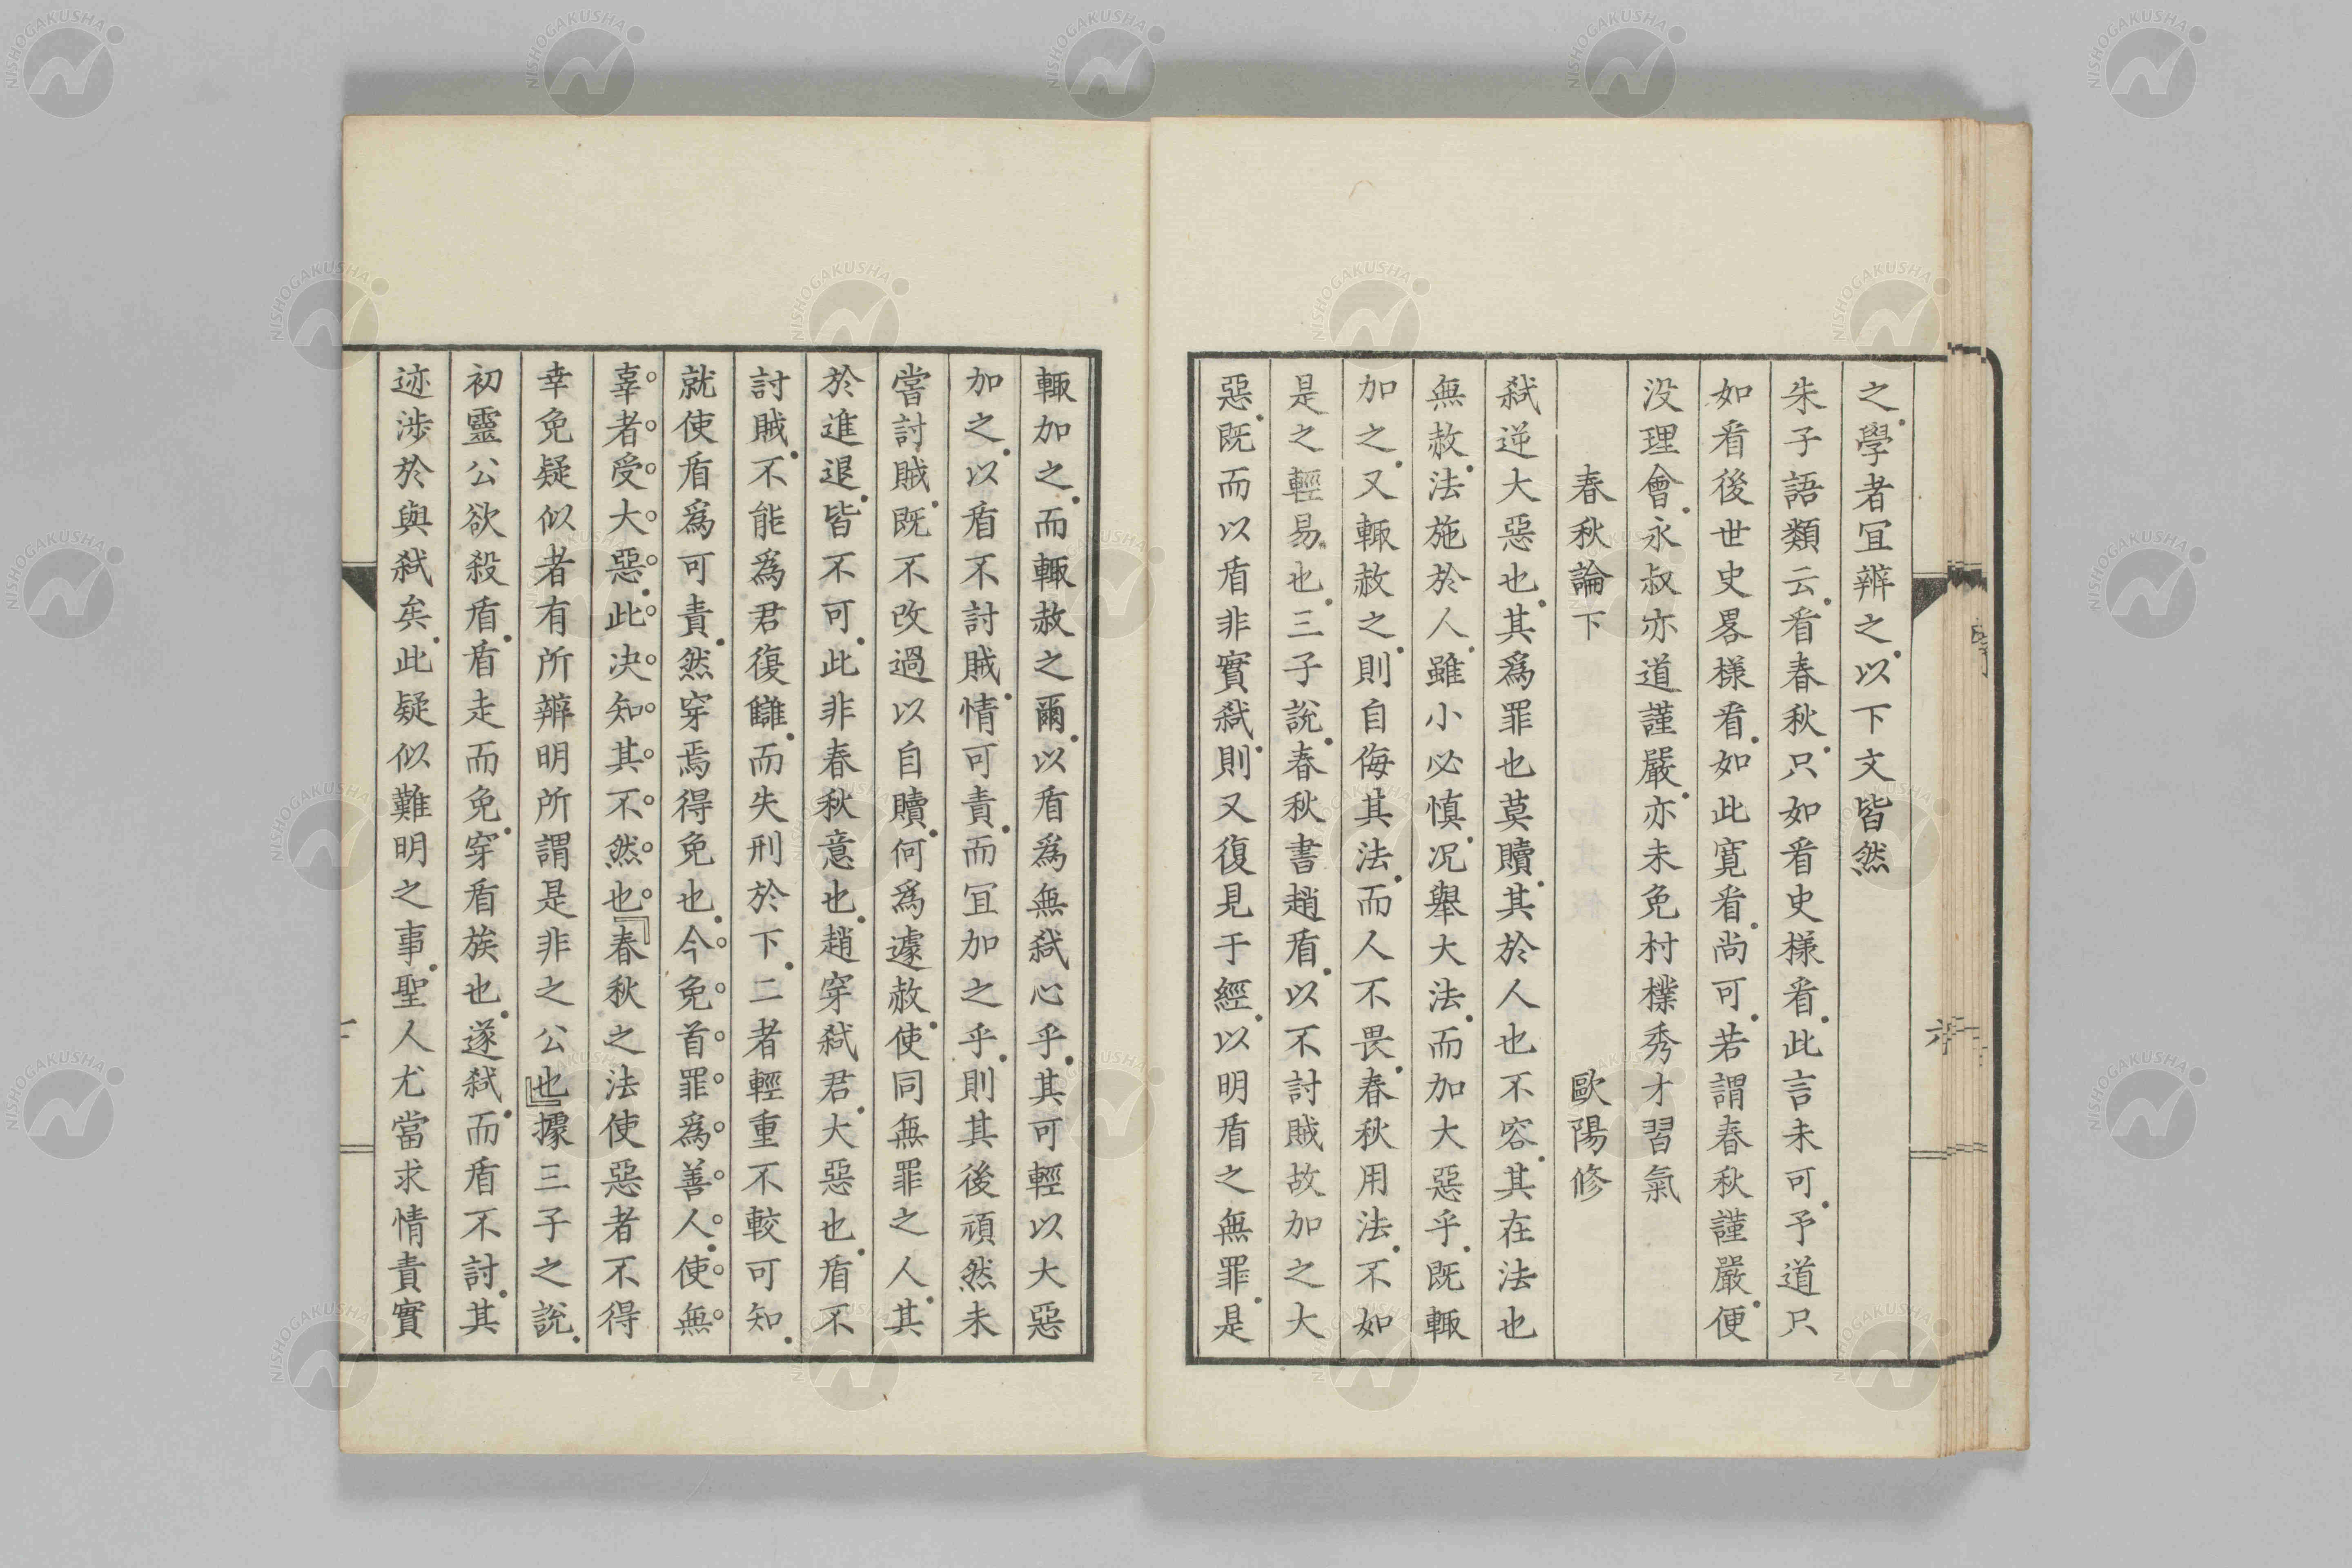 之學者宜辨之以下文皆然
朱子語類云看春秋只如看史樣看此言未可予道只
如看後世史畧樣看如此寛看尚可若謂春秋謹嚴便
没理會永叔亦道謹嚴亦未免村樸秀才習氣
春秋論下 歐陽修
弑逆大惡也其爲罪也莫贖其於人也不容其在法也
無赦法施於人雖小必慎况舉大法而加大惡乎既輒
加之又輒赦之則自侮其法而人不畏春秋用法不如
是之輕易也三子說春秋書趙盾以不討賊故加之大
惡既而以盾非實弑則又復見于經以明盾之無罪是
六
輒加之而輒赦之爾以盾爲無弑心乎其可輕以大惡
加之以盾不討賊情可責而宜加之乎則其後頑然未
嘗討賊既不改過以自贖何爲遽赦使同無罪之人其
於進退皆不可此非春秋意也趙穿弑君大惡也盾不
討賊不能爲君復讎而失刑於下二者輕重不較可知
就使盾爲可責然穿焉得免也今免首罪爲善人使無
辜者受大惡此决知其不然也『春秋之法使惡者不得
幸免疑似者有所辨明所謂是非之公也』據三子之說
初靈公欲殺盾盾走而免穿盾族也遂弑而盾不討其
迹涉於與弑矣此疑似難明之事聖人尤當求情責實
NISHOGAKUSHA